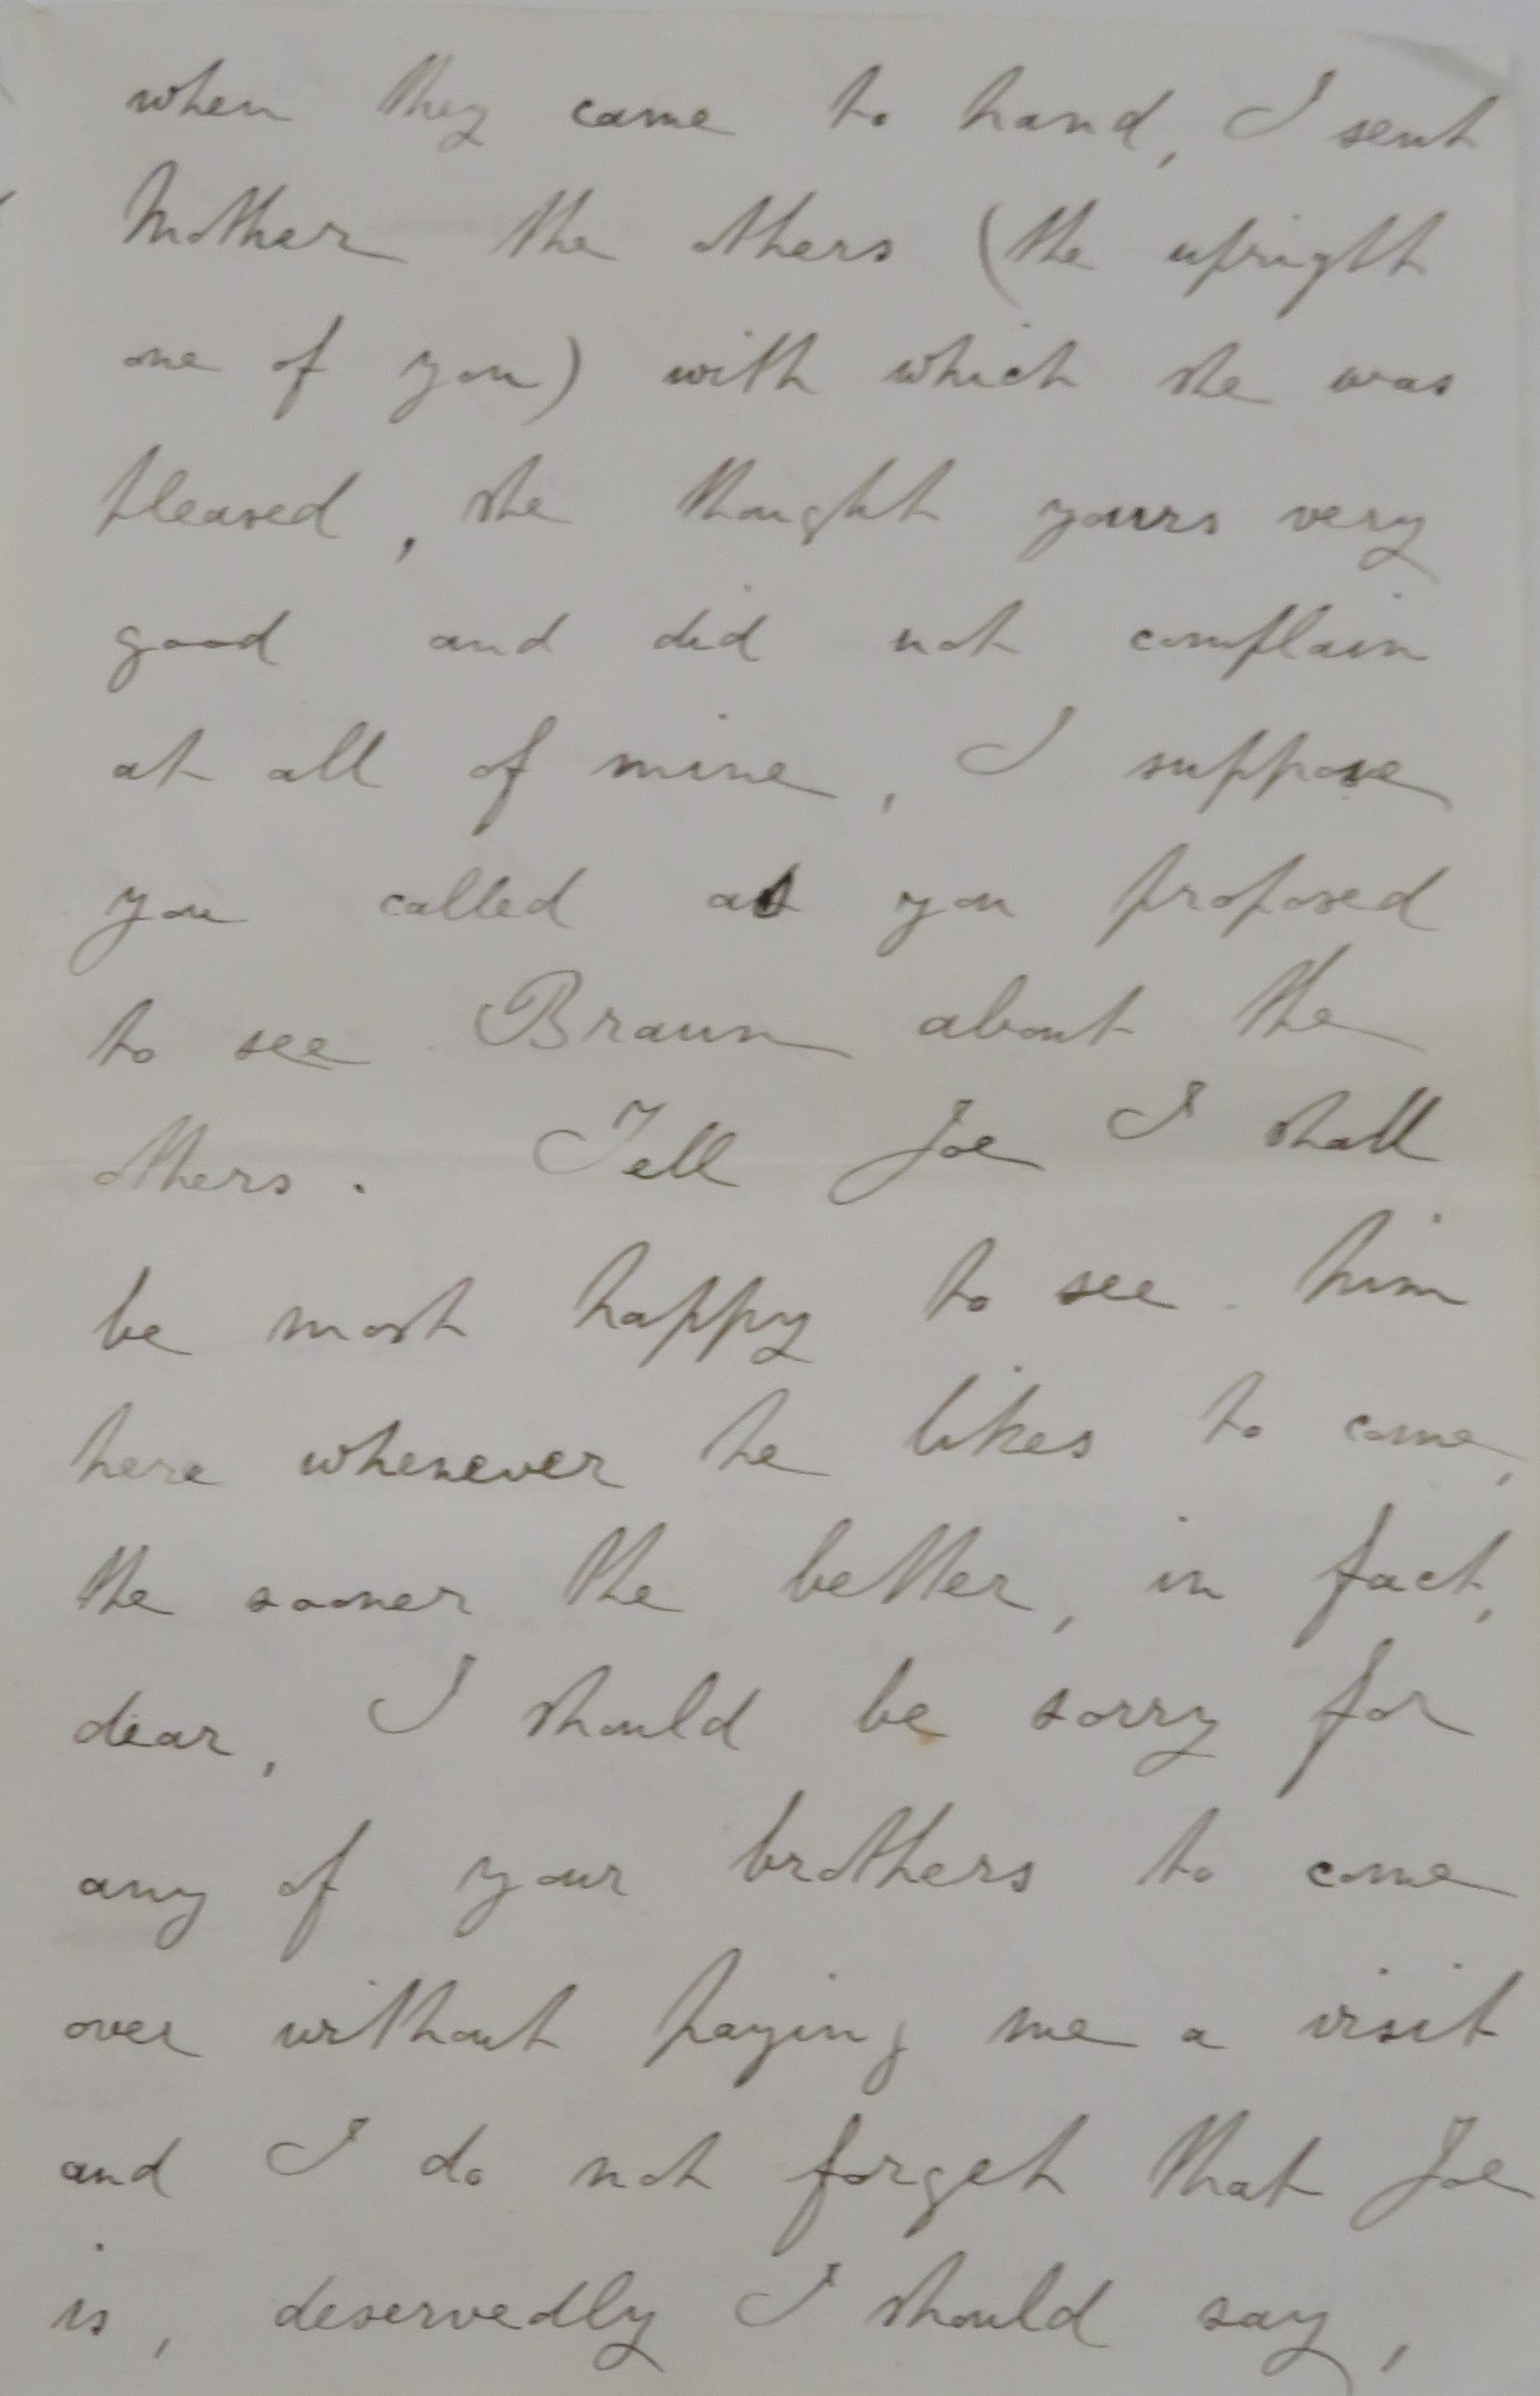 when they came to hand, I sent
Mother the others (the upright
one of you) with which she was
pleased, she thought yours very
good and did not complain
at all of mine, I suppose
you called as you proposed
to see Braun about the
others. Tell Joe I shall
be most happy to see him
here whenever he likes to come,
the sooner the better, in fact,
dear, I should be sorry for
any of your brothers to come
over without paying me a visit
and I do not forget that Joe
is, deservedly I should say,